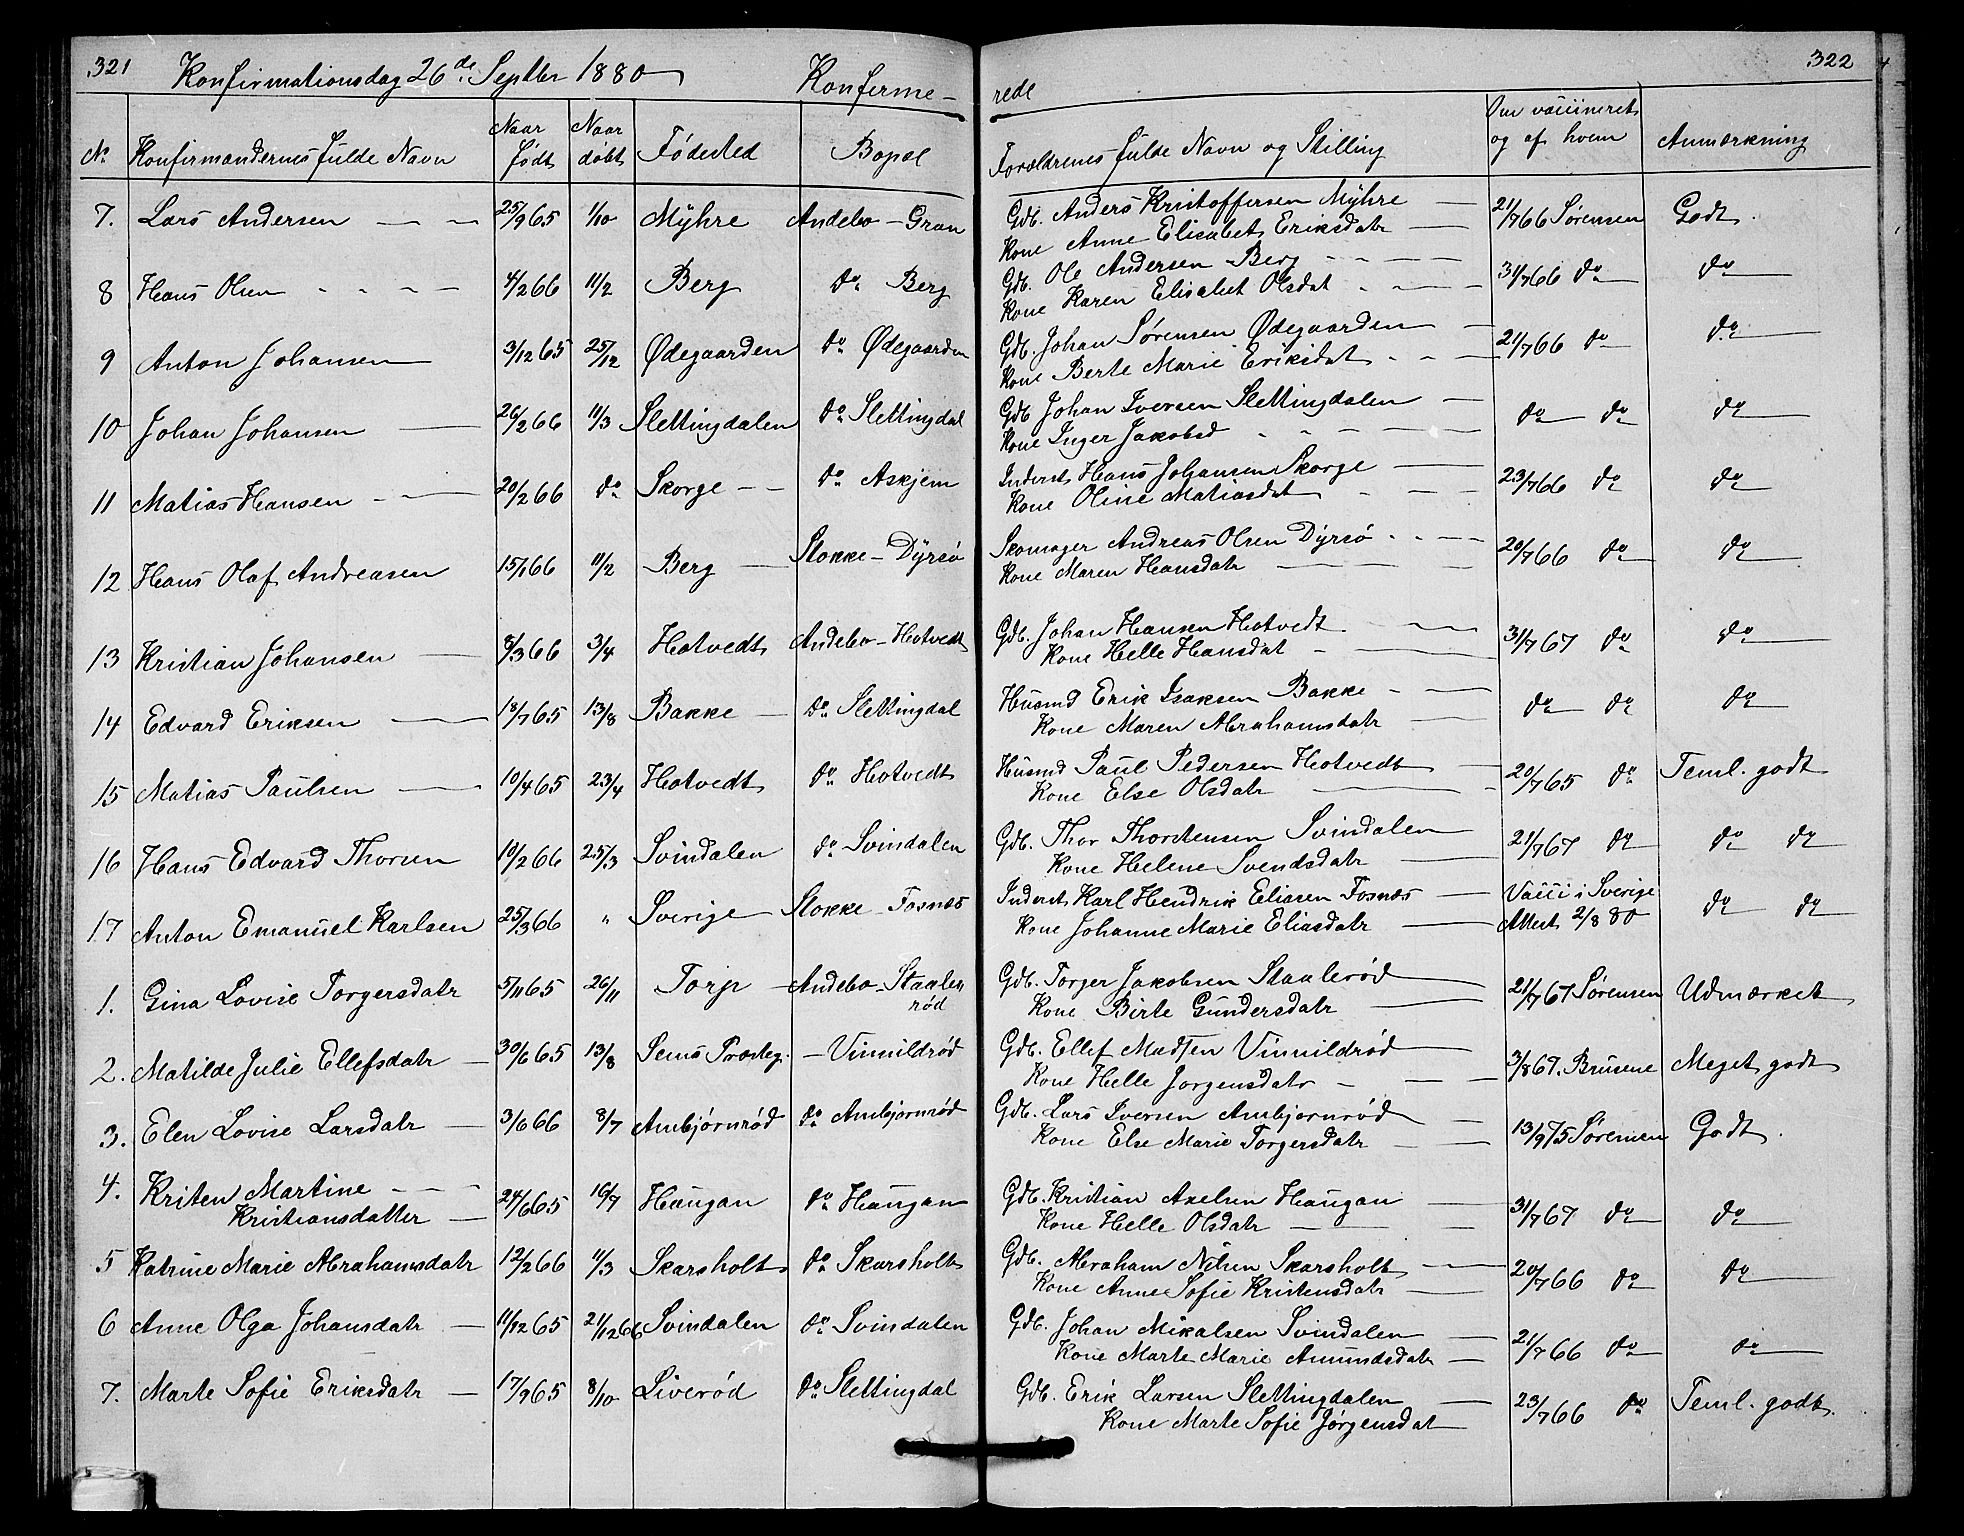 321 Konfirmationsdag 26de Septbr 1880 Konferme- rede 322
No Konfirmandernes fulde Navn Naar født Naar døbt Fødested Bopæl Forældrenes fulde Navn og Stilling Om vaccineret og af hvem Anmærkning
7. Lars Andersen 25/9 65 1/10 Myhre Andebo - Gran Gdb. Anders Kristoffersen Myhre 21/7 66 Sørensen Godt.
Kone Anne Elisabet Eriksdatr
8 Hans Olsen 4/2 66 11/2 Berg do Berg Gdb. Ole Andersen Berg 31/7 66 do do
Kone Karen Elisabet Olsdat
9 Anton Johansen 3/12 65 25/12 Ødegaarden do Ødegaarden Gdb. Johan Sørensen Ødegaarden 21/7 66 do do
Kone Berte Marie Eriksdat
10 Johan Johansen 26/2 66 11/3 Slettingdalen do Slettingdal Gdb Johan Iversen Slettingdalen do do do
Kone Inger Jakobsd
11 Matias Hansen 20/2 66 do Skorge do Askjem Inderst Hans Johansen Skorge 23/7 66 do do
Kone Oline Matiasdat
12 Hans Olaf Andreasen 15/1 66 11/2 Berg Stokke - Dyrsø Skomager Andreas Olsen Dyrsø 20/7 66 do do
Kone Maren Hansdatr
13 Kristian Johansen 8/3 66 3/4 Hotvedt Andebo - Hotvedt Gdb. Johan Hansen Hotvedt 31/7 67 do do
Kone Helle Hansdat
14 Edvard Eriksen 18/7 65 13/8 Bakke do Slettingdal Husmd Erik Isaksen Bakke do do do
Kone Maren Abrahamsdatr
15 Matias Paulsen 10/4 65 23/4 Hotvedt do Hotvedt Husmd Paul Pedersen Hotvedt 20/7 65 do Teml. godt
Kone Else Olsdatr
16 Hans Edvard Thorsen 10/2 66 25/3 Svindalen do Svindalen Gdb. Thor Thorstensen Svindalen 21/7 67 do do do
Kone Helene Svendsdatr
17 Anton Emanuel Karlsen 25/3 66 " Sverige Stokke - Fosnæs Inderst Karl Hendrik Eliasen Fosnæs Vacci i Sverige do do
Kone Johanne Marie Eliasdatr Attest 2/8 80
1. Gina Lovise Torgersdatr 5/11 65 26/11 Torp Andebo - Staalerød Gdb. Torger Jakobsen Staalerød 21/7 67 Sørensen Udmærket
Kone Birte Gundersdatr
2. Matilde Julie Ellefsdatr 30/6 65 13/8 Sems Præsteg. - Vinnildrød Gdb. Ellef Madsen Vinnildrød 3/8 67. Brusene Meget godt
Kone Helle Jørgensdatr
3. Elen Lovise Larsdatr 3/6 66 8/7 Ambjørnrød do Ambjørnrød Gdb. Lars Iversen Ambjørnrød 13/9 75 Sørensen Godt.
Kone Else Marie Torgersdatr
4. Kristen Martine 24/6 65 16/7 Haugan do Haugan Gdb. Kristian Axelsen Haugan 31/7 67 do do
Kristiansdatter Kone Helle Olsdatr
5 Katrine Marie Abrahamsdatr 12/2 66 11/3 Skarsholt do Skarsholt Gdb. Abraham Nilsen Skarsholt 20/7 66 do do
Kone Anne Sofie Kristensdatr
6 Anne Olga Johansdatr 11/12 65 21/1 266 Svindalen do Svindalen Gdb. Johan Mikalsen Svindalen 21/7 66 do do
Kone Marte Marie Amundsdatr
7. Marte Sofie Eriksdatr 17/9 65 8/10 Liverød do Slettingdal Gdb. Erik Larsen Slettingdalen 23/7 66 do Teml. godt.
Kone Marte Sofie Jørgensdat